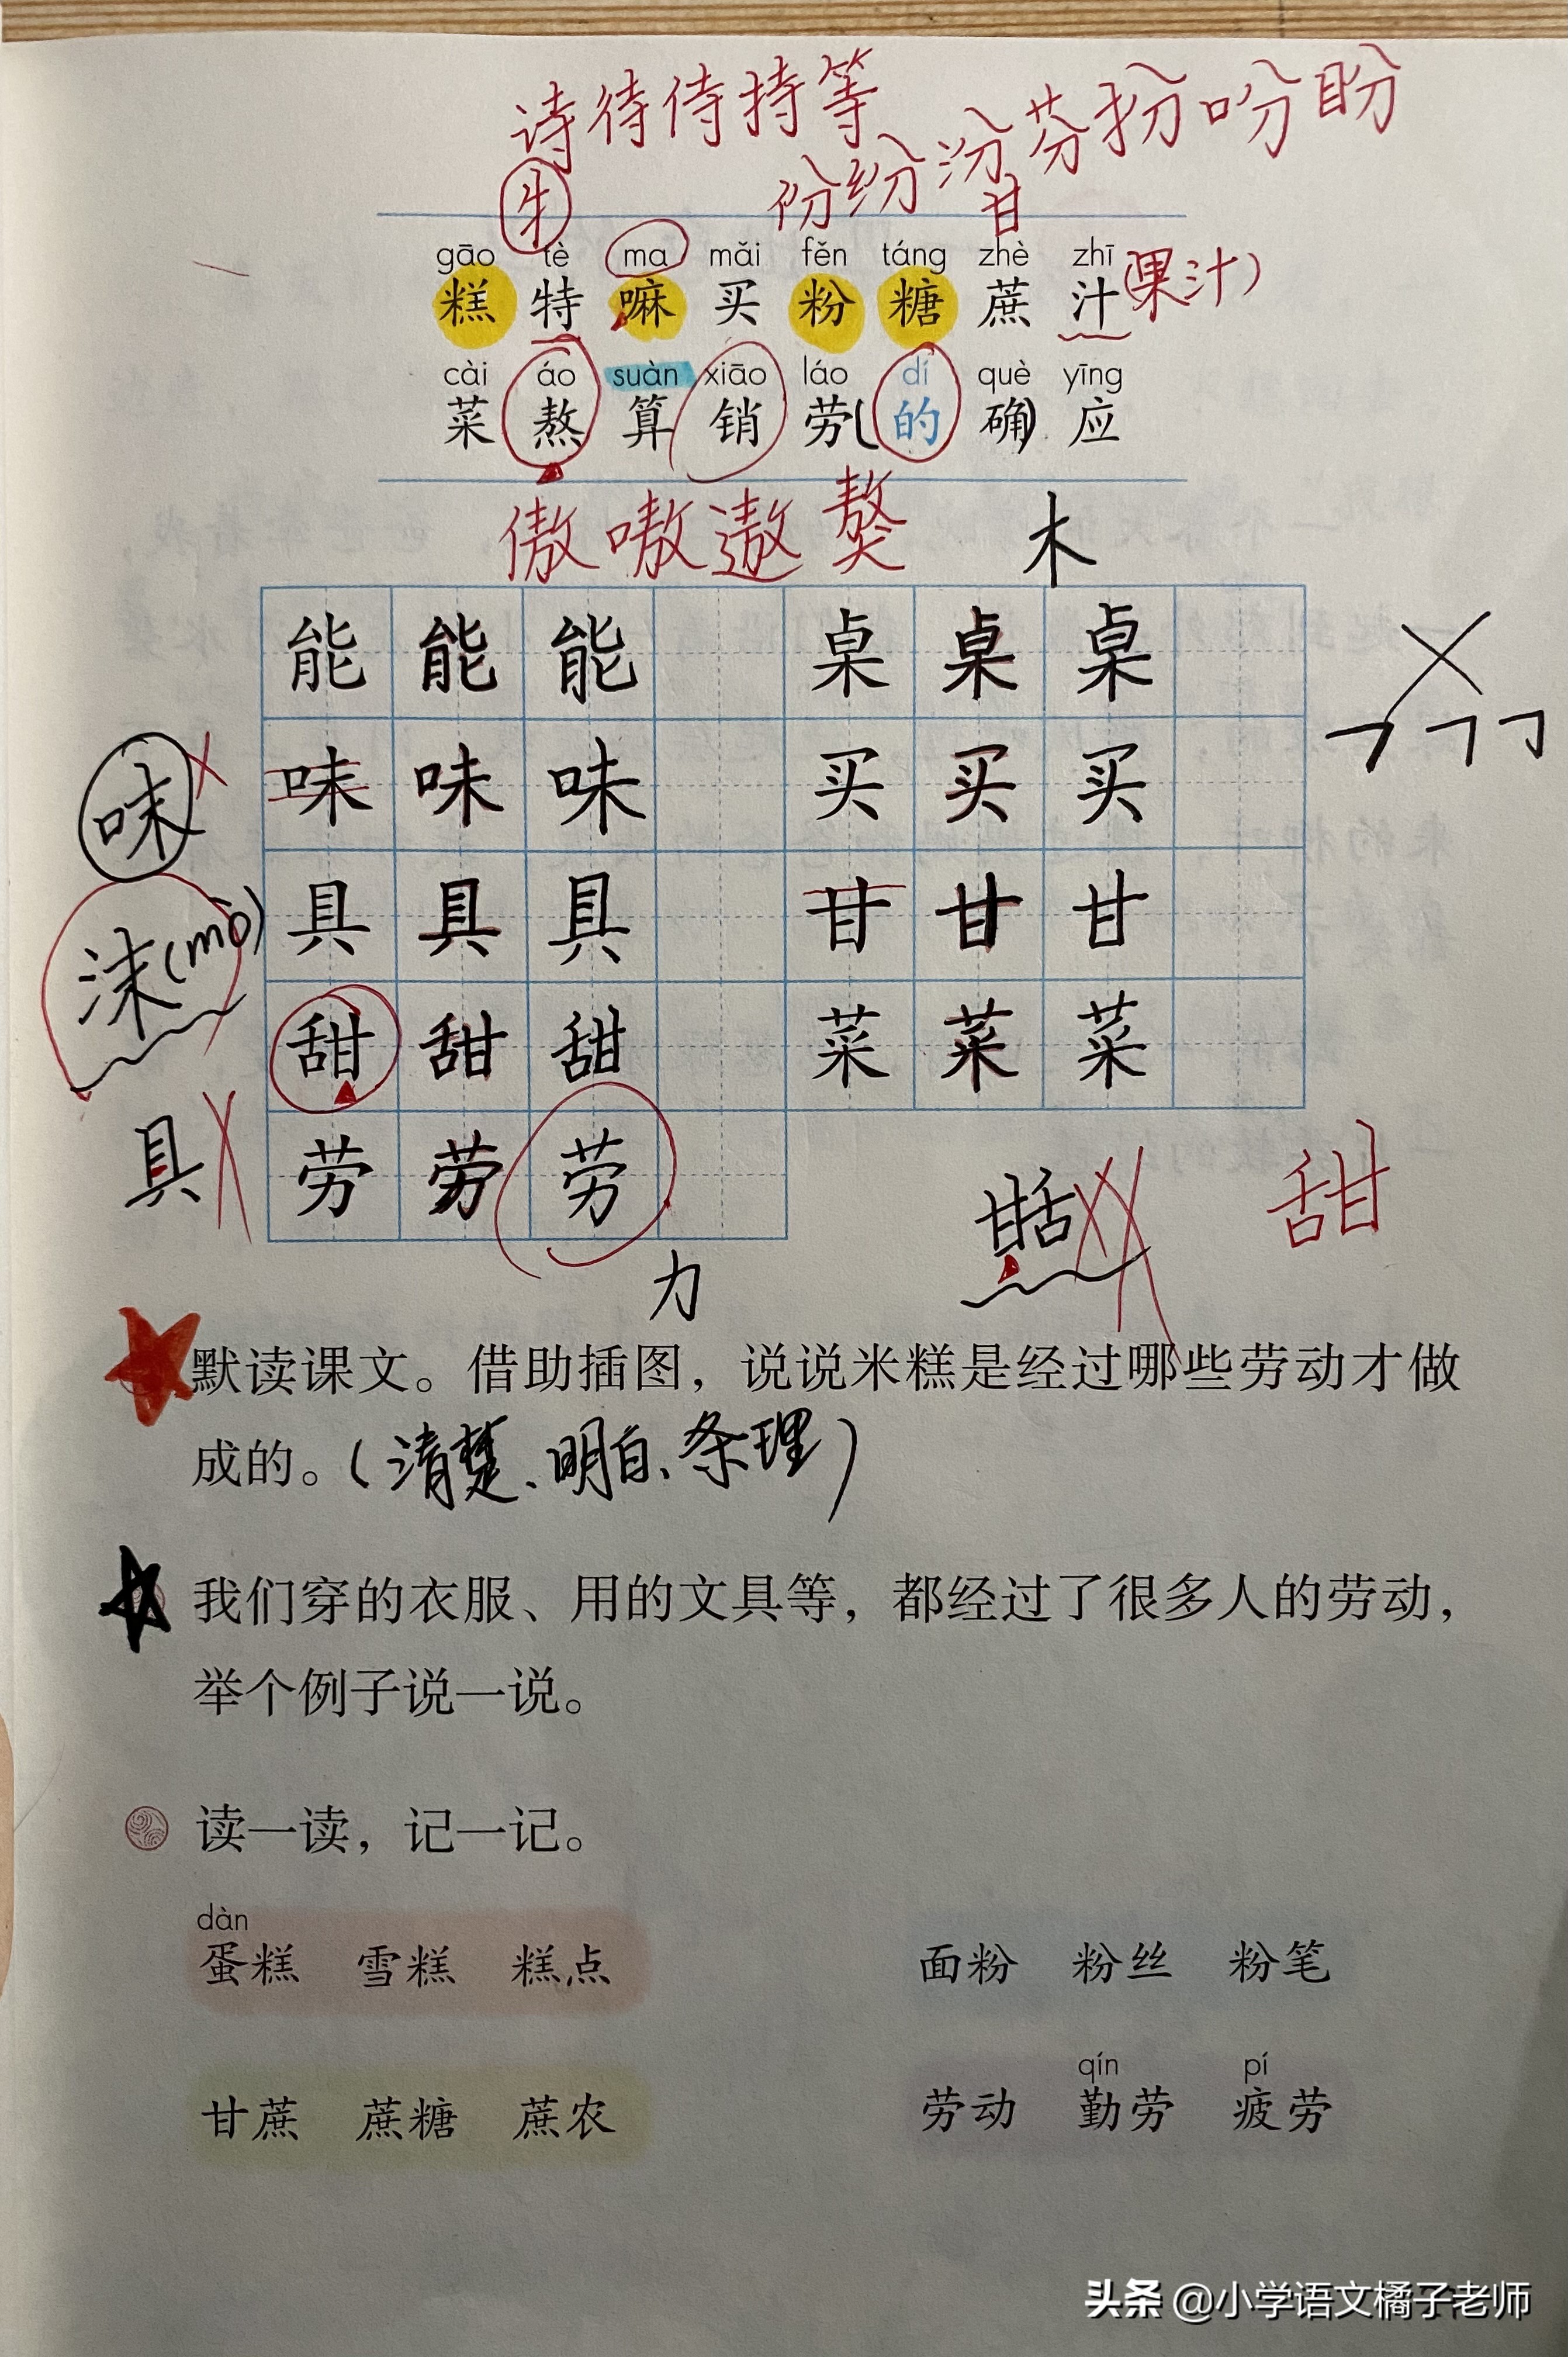 诗待侍持等
份纷汾芬扮吩盼
牜 甘
gāo tè ma mǎi fěn táng zhè zhī
糕 特 嘛 买 粉 糖 蔗 汁(果汁)
cài áo suàn xiāo láo dí què yīng
菜 熬 算 销 劳(的 确)应
傲嗷遨獒 木
能 能 能 桌 桌 桌
味 味 味 味 买 买 买
沫(mò) 具 具 具 甘 甘 甘
甜 甜 甜 菜 菜 菜
劳 劳 劳 甜
力
默读课文。借助插图，说说米糕是经过哪些劳动才做
成的。(清楚、明白、条理)
我们穿的衣服、用的文具等，都经过了很多人的劳动，
举个例子说一说。
读一读，记一记。
dàn
蛋糕 雪糕 糕点 面粉 粉丝 粉笔
qín pí
甘蔗 蔗糖 蔗农 劳动 勤劳 疲劳
头条 @小学语文橘子老师